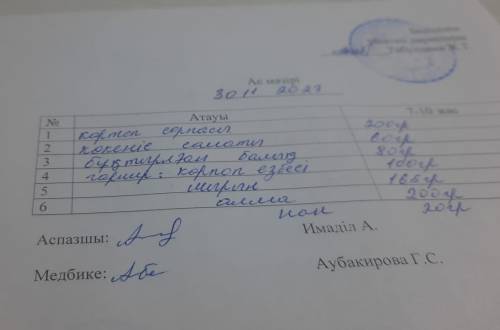 Ас мәзірі
30.11 2023
№ Атауы 7-10 жас
1 картоп сорпасы 200гр
2 көкөніс салаты 60гр
3 бұқтырылған балық 80гр
4 гарнир: картоп езбесі 100гр
5 шырын
6 алма 200гр
нан 20гр
Аспазшы: Имаділ А.
Медбике: Аубакирова Г.С.